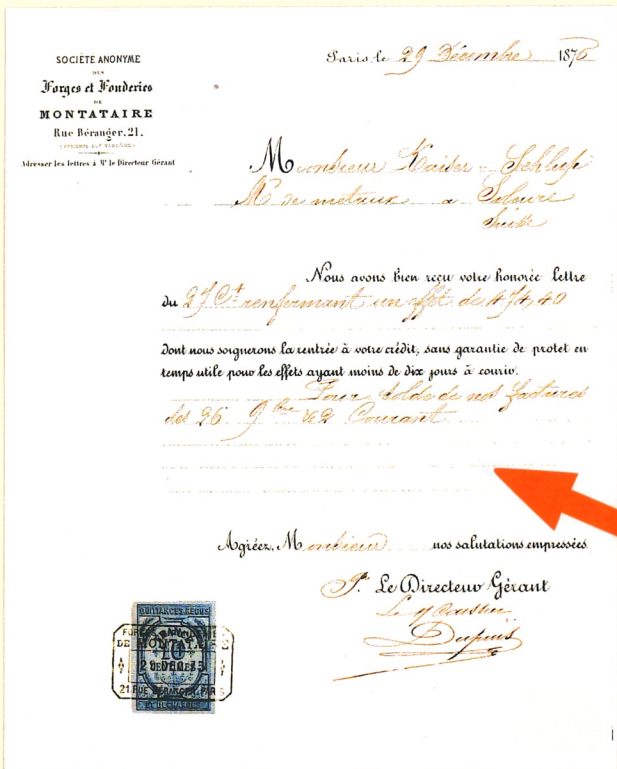 SOCIÉTÉ ANONYME
DES
Forges et Fonderies
DE
MONTATAIRE
Rue Béranger. 21.
Adresser les lettres à Mr le Directeur Gérant
Paris, le 29 Décembre 1875
Monsieur Kaiser - Schlup
Md de metaux a Soleure
Suisse
Nous avons bien reçu votre honorée lettre
du 27 Ct renfermant un effet de 474,40
dont nous soignerons la rentrée à votre crédit, sans garantie de protet en
temps utile pour les effets ayant moins de dix jours à courir.
Pour solde de nos factures
des 26 9bre & 2 Courant
Agréez, Monsieur nos salutations empressées.
Pr Le Directeur Gérant
Le Caissier
Dupuis
QUITTANCES REÇUS
10
DE MONTATAIRE
21 RUE BÉRANGER, PARIS
ET DÉCHARGES